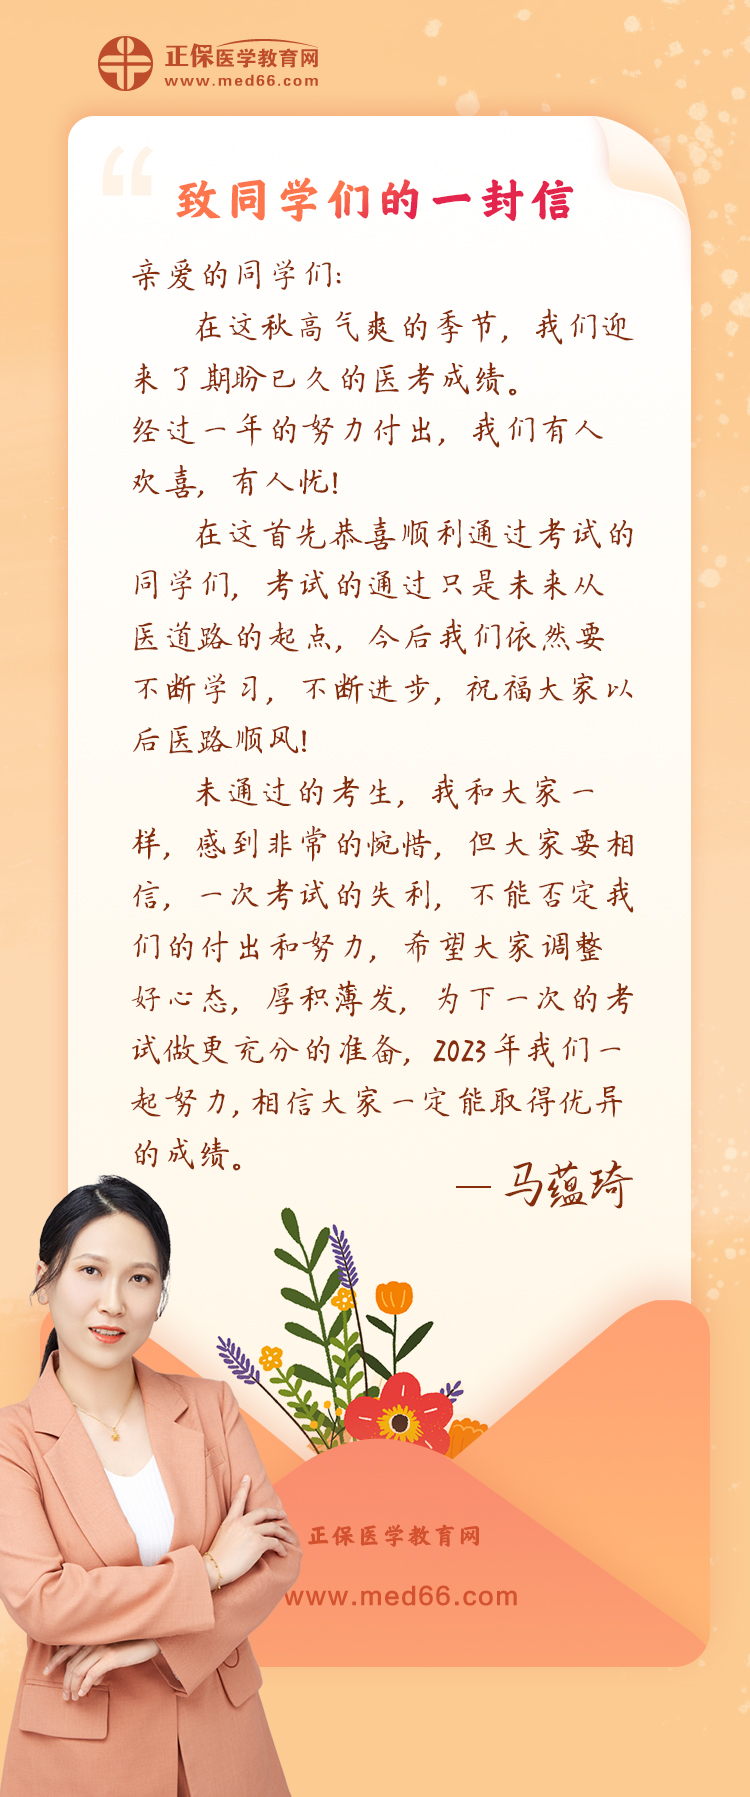 正保医学教育网
www.med66.com
致同学们的一封信
亲爱的同学们:
在这秋高气爽的季节, 我们迎
来了期盼已久的医考成绩。
经过一年的努力付出, 我们有人
欢喜, 有人忧!
在这首先恭喜顺利通过考试的
同学们, 考试的通过只是未来从
医道路的起点, 今后我们依然要
不断学习, 不断进步, 祝福大家以
后医路顺风!
未通过的考生, 我和大家一
样, 感到非常的惋惜, 但大家要相
信, 一次考试的失利, 不能否定我
们的付出和努力, 希望大家调整
好心态, 厚积薄发, 为下一次的考
试做更充分的准备, 2023年我们一
起努力, 相信大家一定能取得优异
的成绩。
— 马蕴琦
正保医学教育网
www.med66.com